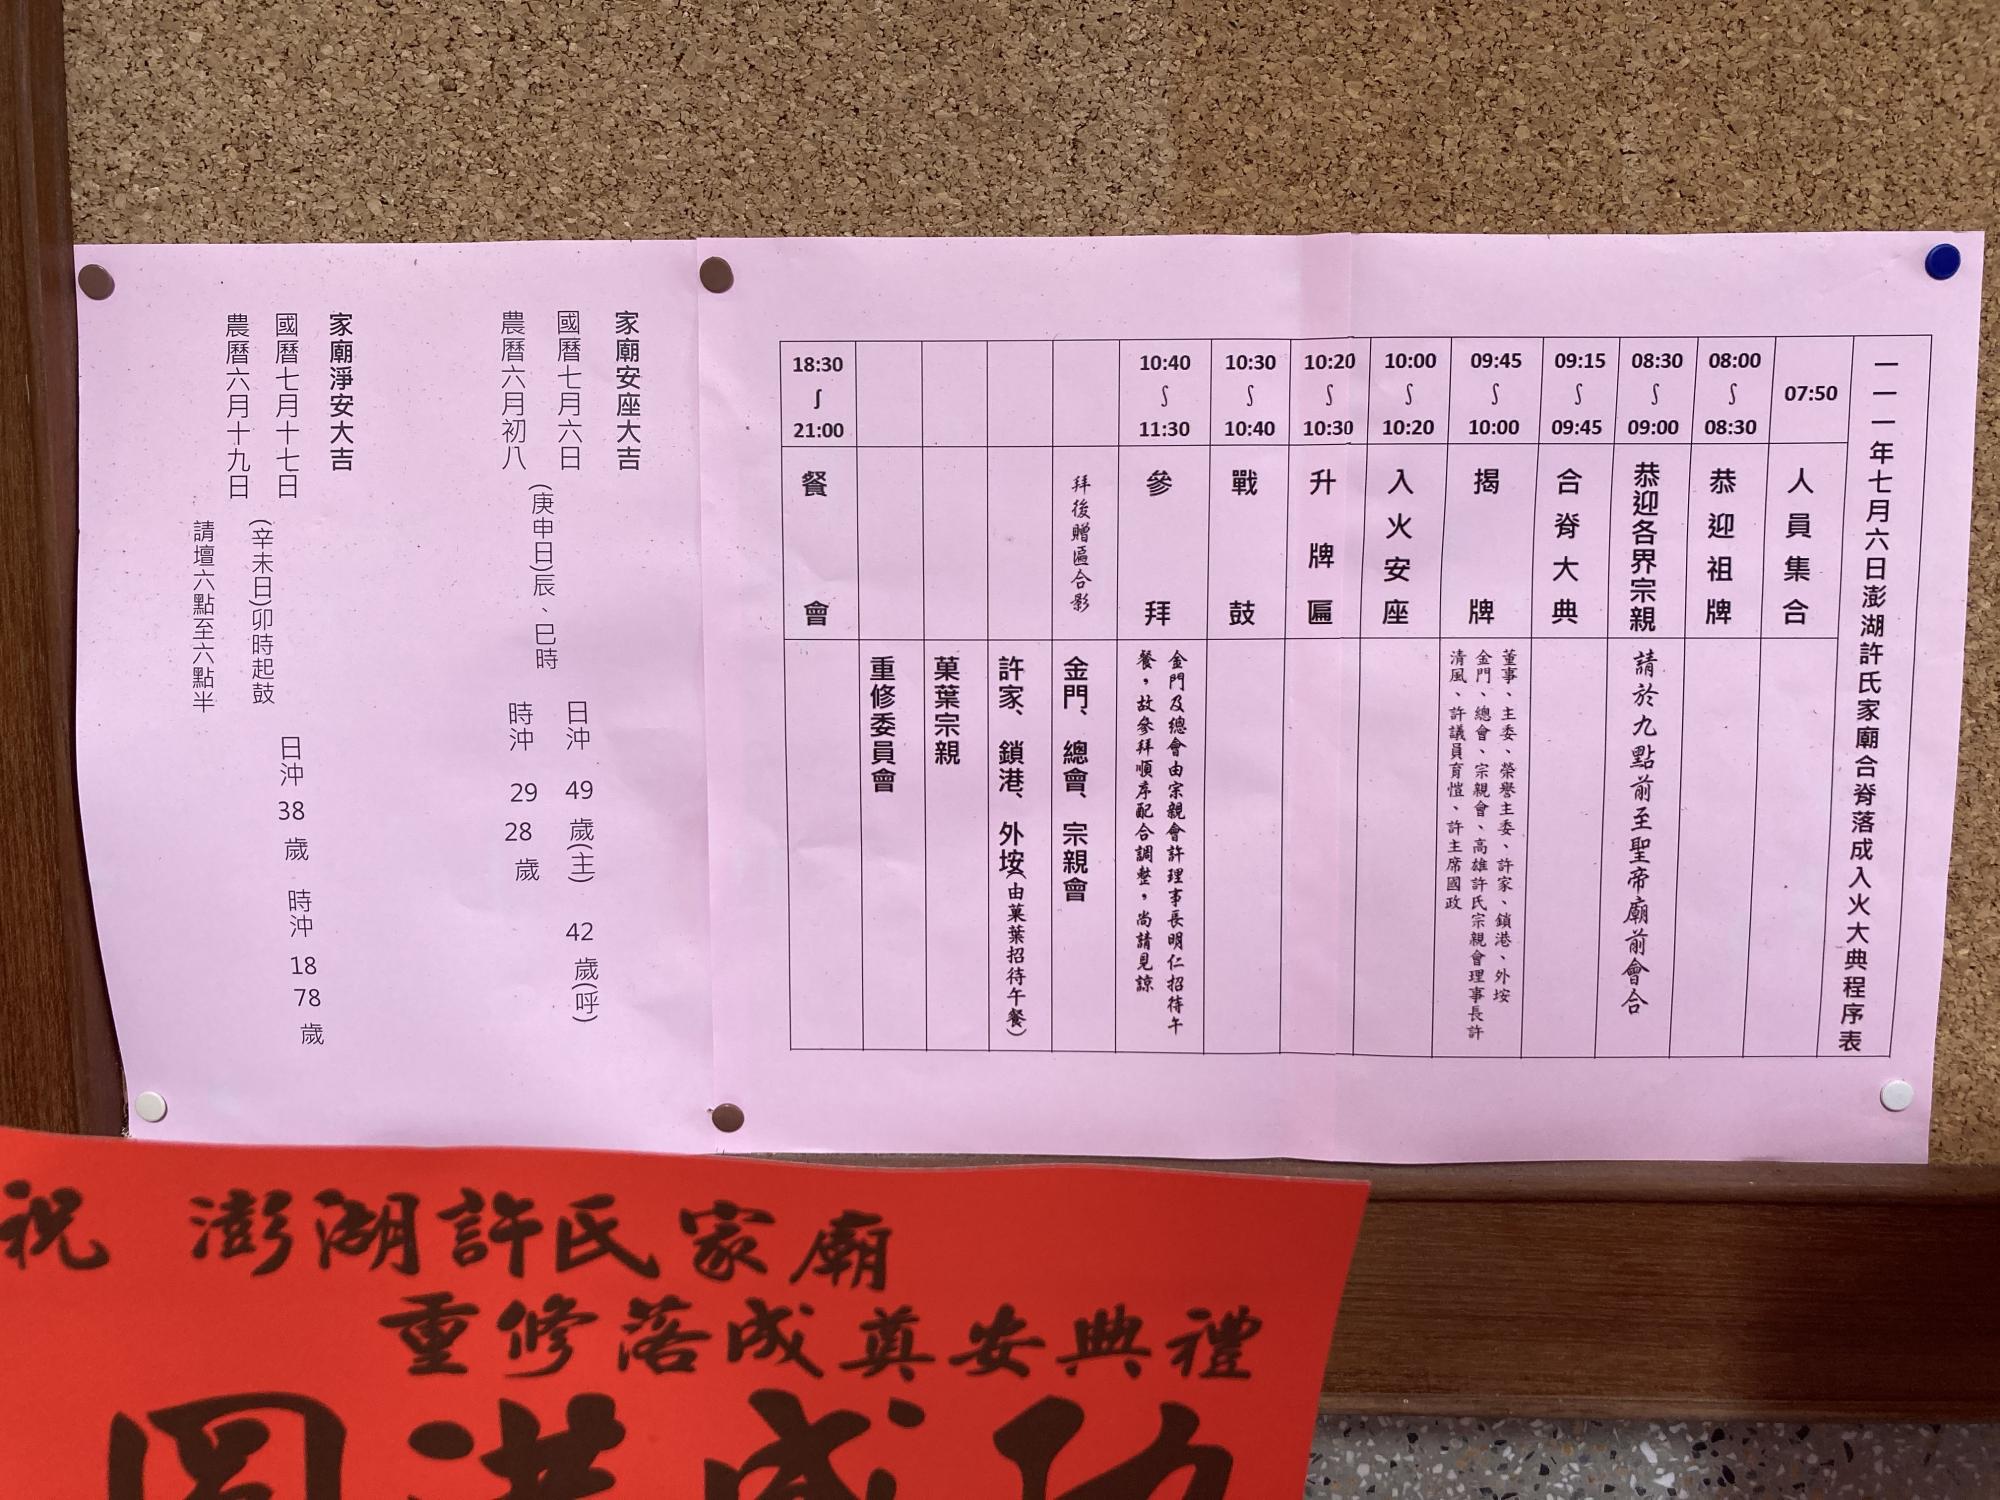 一一一年七月六日澎湖許氏家廟合脊落成入火大典程序表
07:50
人員集合
08:00
∫
08:30
恭迎祖牌
08:30
∫
09:00
恭迎各界宗親
請於九點前至聖帝廟前會合
09:15
∫
09:45
合脊大典
09:45
∫
10:00
揭牌
董事、主委、榮譽主委、許家、鎖港、外垵
金門、總會、宗親會、高雄許氏宗親會理事長許
清風、許議員育愷、許主席國政
10:00
∫
10:20
入火安座
10:20
∫
10:30
升牌匾
10:30
∫
10:40
戰鼓
10:40
∫
11:30
參拜
金門及總會由宗親會許理事長明仁招待午
餐，故參拜順序配合調整，尚請見諒
拜後贈匾合影
金門、總會、宗親會
許家、鎖港、外垵(由菓葉招待午餐)
菓葉宗親
重修委員會
18:30
∫
21:00
餐會
家廟安座大吉
國曆七月六日
農曆六月初八
(庚申日)辰、巳時
日沖 49 歲(主) 42 歲(呼)
時沖 29 28 歲
家廟淨安大吉
國曆七月十七日
農曆六月十九日
(辛未日)卯時起鼓
請壇六點至六點半
日沖 38 歲 時沖 18 78 歲
祝 澎湖許氏家廟
重修落成奠安典禮
圓洪成功